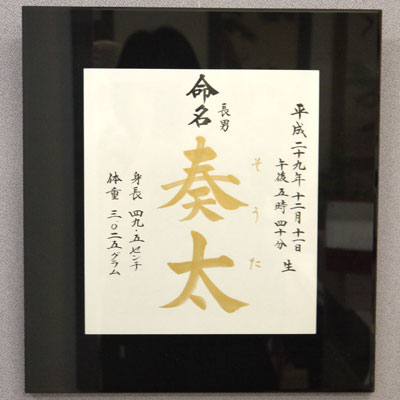 平成二十九年十二月十一日
午後五時四十分 生
命名
長男
奏太
そうた
身長 四九・五センチ
体重 三〇二五グラム